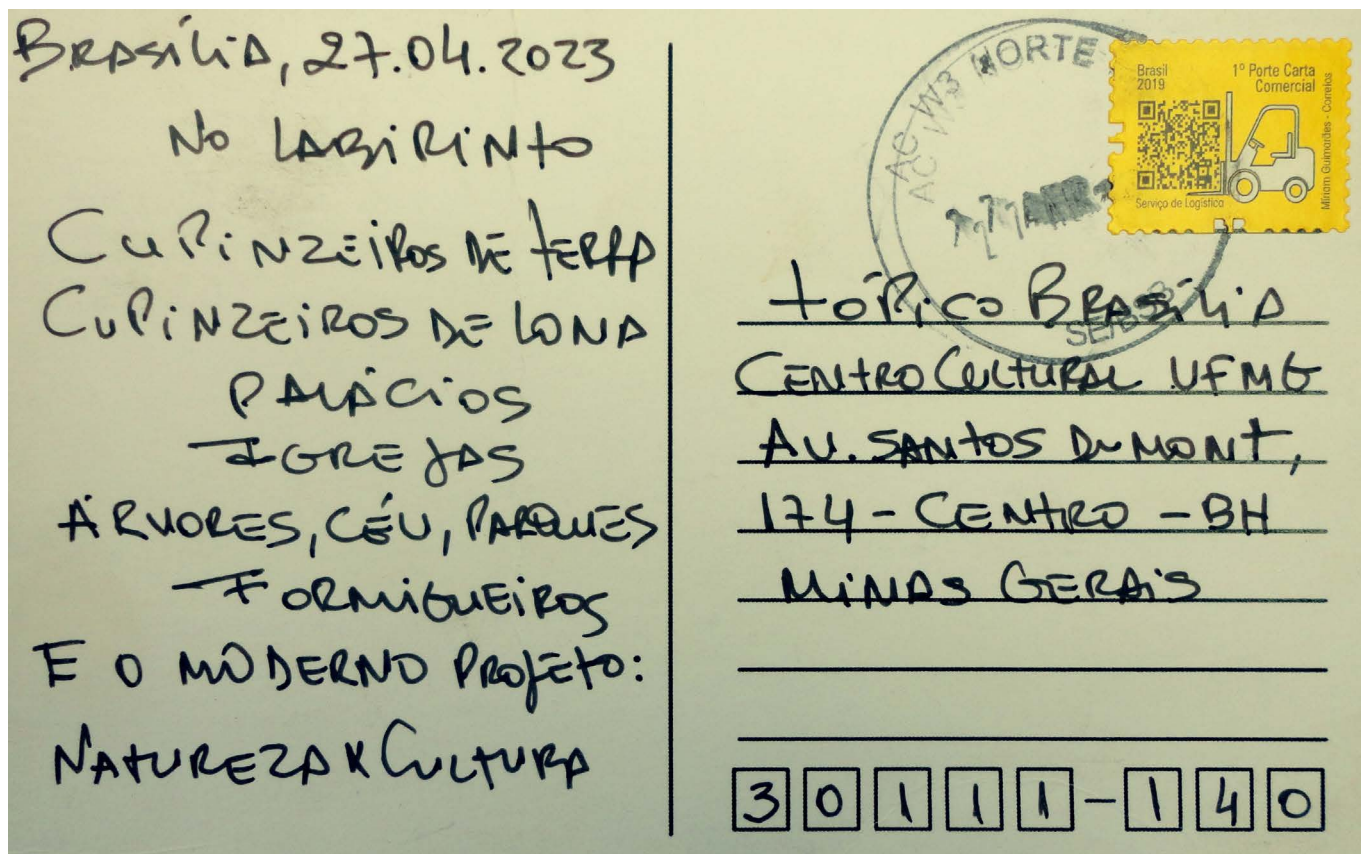 Brasília, 27.04.2023
No Labirinto
Cupinzeiros de terra
Cupinzeiros de lona
Palácios
Igrejas
Árvores, céu, parques
Formigueiros
E o moderno projeto:
Natureza x Cultura
AC W3 NORTE
AC W3
SE/BSB
Brasil
2019
1º Porte Carta
Comercial
Serviço de Logística
Miriam Guimarães - Correios
Tópico Brasília
Centro Cultural UFMG
Av. Santos Dumont,
174 - Centro - BH
Minas Gerais
30111-140